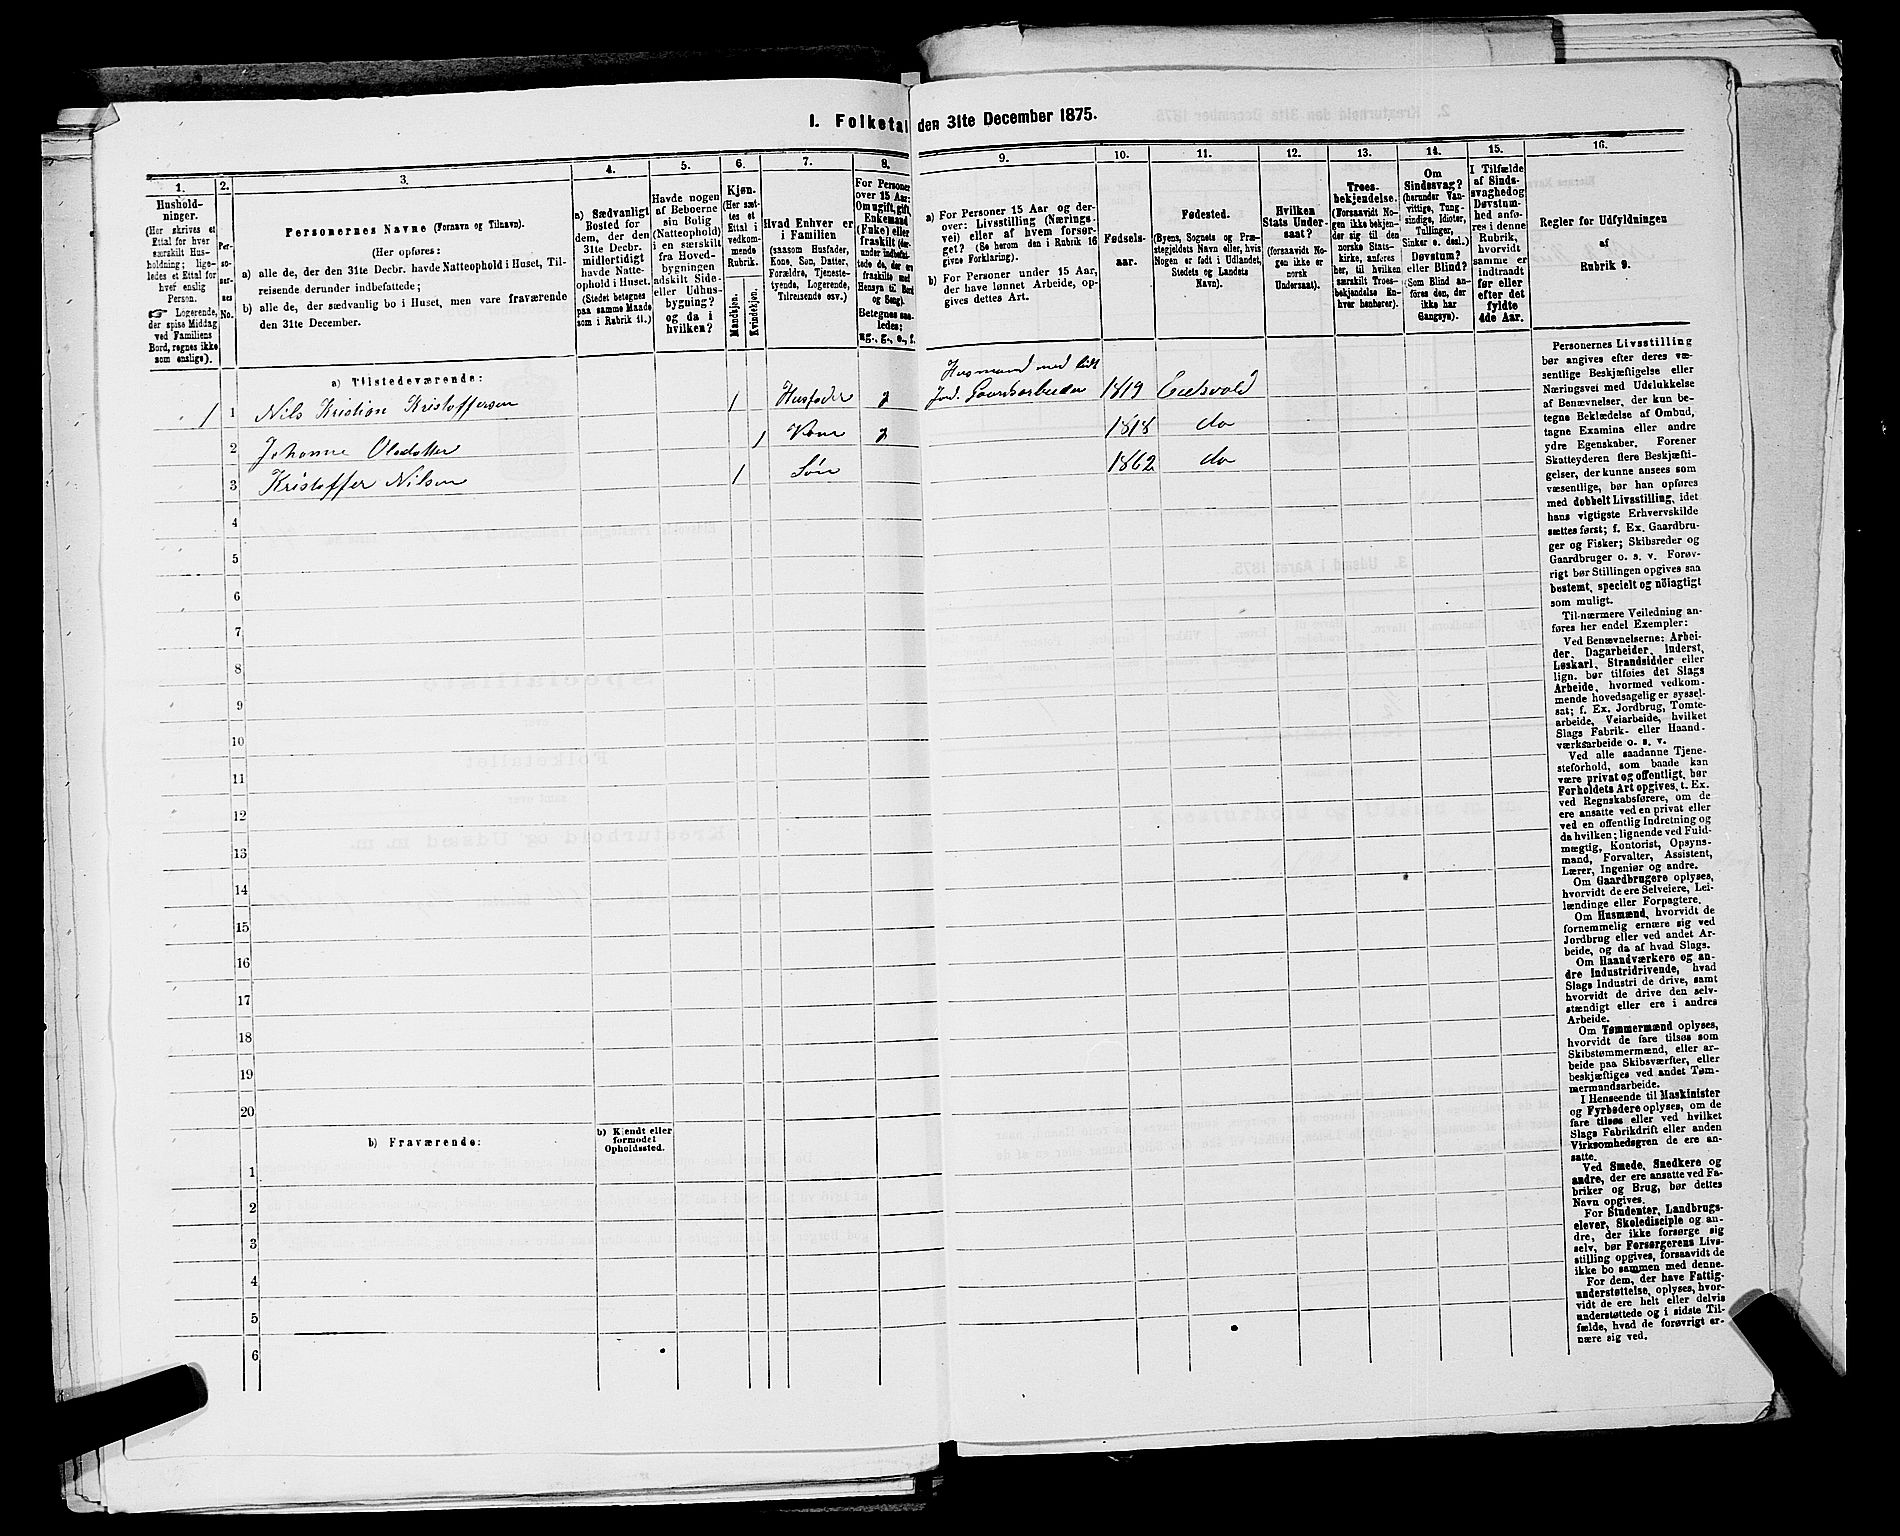 1. Folketal den 31te December 1875.
1.
Hushold-
ninger.
(Her skrives et
Ettal for hver
særskilt Hus-
holdning; lige-
ledes et Ettal for
hver enslig
Person.
Logerende,
der spise Middag
ved Familiens
Bord, regnes ikke
som enslige).
2.
Per-
so-
ner-
nes
No.
3.
Personernes Navne (Fornavn og Tilnavn).
(Her opføres:
a) alle de, der den 31te Decbr. havde Natteophold i Huset, Til-
reisende derunder indbefattede;
b) alle de, der sædvanlig bo i Huset, men vare fraværende
den 31te December.
4.
a) Sædvanligt
Bosted for
dem, der den
31te Decbr.
midlertidigt
havde Natte-
ophold i Huset.
(Stedet betegnes
paa samme Maade
som i Rubrik 11.)
5.
Havde nogen
af Beboerne
sin Bolig
(Natteophold)
i en særskilt
fra Hoved-
bygningen
adskilt Side-
eller Udhus-
bygning?
og da i
hvilken?
6.
Kjøn.
(Her sæt-
tes et
Ettal i
vedkom-
mende
Rubrik.
Mandkjøn.
Kvindekjøn.
7.
Hvad Enhver er
i Familien
(saasom Husfader,
Kone, Søn, Datter,
Forældre, Tjeneste-
tyende, Logerende,
Tilreisende osv.)
8.
For Personer
over 15 Aar:
Om ugift, gift,
Enkemand
(Enke) eller
fraskilt (der-
under indbefat-
tede de, der ere
fraskilte med
Hensyn til Bord
og Seng).
Betegnes saa-
ledes:
ug., g., e., f.
9.
a) For Personer 15 Aar og der-
over: Livsstilling (Nærings-
vei) eller af hvem forsør-
get? (Se herom den i Rubrik 16
givne Forklaring).
b) For Personer under 15 Aar,
der have lønnet Arbeide, op-
gives dettes Art.
10.
Fødsels-
aar.
11.
Fødested.
(Byens, Sognets og Præ-
stegjeldets Navn eller, hvis
Nogen er født i Udlandet,
Stedets og Landets
Navn).
12.
Hvilken
Stats Under-
saat?
(forsaavidt No-
gen ikke er
norsk
Undersaat).
13.
Troes-
bekjendelse.
(Forsaavidt No-
gen ikke bekjen-
der sig til den
norske Stats-
kirke, anføres
her, til hvilken
særskilt Troes-
bekjendelse En-
hver henhører).
14.
Om
Sindssvag?
(herunder Van-
vittige, Tung-
sindige, Idioter,
Tullinger,
Sinker o. desl.)
Døvstum?
eller Blind?
(Som Blind an-
føres den, der
ikke har
Gangsyn).
15.
I Tilfælde
af Sinds-
svaghed og
Døvstum-
hed anfø-
res i denne
Rubrik,
hvorvidt
samme er
indtraadt
før eller
efter det
fyldte
4de Aar.
16.
Regler for Udfyldningen
af
Rubrik 9.
a) Tilstedeværende:
1 1 Nils Kristian Kristoffersen 1 Husfader g Husmand med lidt
Jord. Gaardsarbeider 1819 Eidsvold
2 Johanne Olsdatter 1 Kone g 1818 do
3 Kristoffer Nilsen 1 Søn 1862 do
4
5
6
7
8
9
10
11
12
13
14
15
16
17
18
19
20
b) Fraværende:
b) Kjendt eller
formodet
Opholdssted.
1
2
3
4
5
6
Personernes Livsstilling
bør angives efter deres væ-
sentlige Beskjæftigelse eller
Næringsvei med Udelukkelse
af Benævnelser, der kun be-
tegne Beklædelse af Ombud,
tagne Examina eller andre
ydre Egenskaber. Forener
Skatteyderen flere Beskjæfti-
gelser, der kunne ansees som
væsentlige, bør han opføres
med dobbelt Livsstilling, idet
hans vigtigste Erhvervskilde
sættes først; f. Ex. Gaardbru-
ger og Fisker; Skibsreder og
Gaardbruger o. s. v. Forøv-
rigt bør Stillingen opgives saa
bestemt, specielt og nöiagtigt
som muligt.
Til nærmere Veiledning an-
føres her endel Exempler:
Ved Benævnelserne: Arbei-
der, Dagarbeider, Inderst,
Løskarl, Strandsidder eller
lign. bør tilføies det Slags
Arbeide, hvormed vedkom-
mende hovedsagelig er syssel-
sat; f. Ex. Jordbrug, Tomte-
arbeide, Veiarbeide, hvilket
Slags Fabrik- eller Haand-
værksarbeide o. s. v.
Ved alle saadanne Tjene-
steforhold, som baade kan
være privat og offentligt, bør
Forholdets Art opgives, t. Ex.
ved Regnskabsførere, om de
ere ansatte ved en privat eller
ved en offentlig Indretning og
da hvilken; lignende ved Fuld-
mægtig, Kontorist, Opsyns-
mand, Forvalter, Assistent,
Lærer, Ingeniør og andre.
Om Gaardbrugere oplyses,
hvorvidt de ere Selveiere, Lei-
lændinge eller Forpagtere.
Om Husmænd, hvorvidt de
fornemmelig ernære sig ved
Jordbrug eller ved andet Ar-
beide, og da af hvad Slags.
Om Haandværkere og an-
dre Industridrivende, hvad
Slags Industri de drive, samt
hvorvidt de drive den selv-
stændigt eller ere i andres
Arbeide.
Om Tømmermænd oplyses,
hvorvidt de fare tilsøs som
Skibstømmermænd, eller ar-
beide paa Skibsværfter, eller
beskjæftiges ved andet Tøm-
mermandsarbeide.
I Henseende til Maskinister
og Fyrbødere oplyses, om de
fare tilsøs eller ved hvilket
Slags Fabrikdrift eller anden
Virksomhedsgren de ere an-
satte.
Ved Smede, Snedkere og
andre, der ere ansatte ved Fa-
briker og Brug, bør dettes
Navn opgives.
For Studenter, Landbrugs-
elever, Skoledisciple og an-
dre, der ikke forsørge sig
selv, bør Forsørgerens Livs-
stilling opgives, forsaavidt de
ikke bo sammen med denne.
For dem, der have Fattig-
understøttelse, oplyses, hvor-
vidt de ere helt eller delvis
understøttede og i sidste Til-
fælde, hvad de forøvrigt er-
nære sig ved.